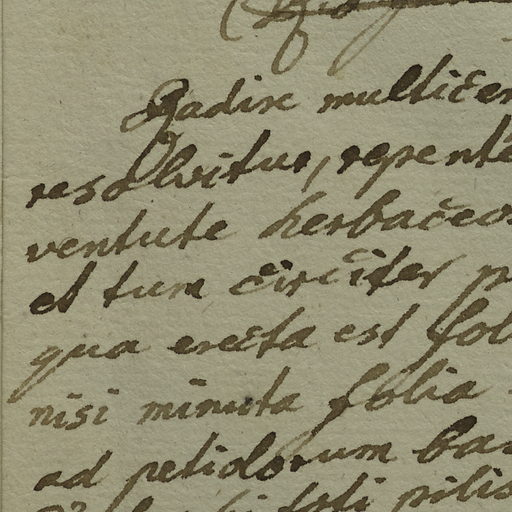 Radix multicep
resolvitur, repente
ventute herbaceos
et tum circiter p
qua erecta est fol
nisi minuta folia
ad petiolorum bas
pilis